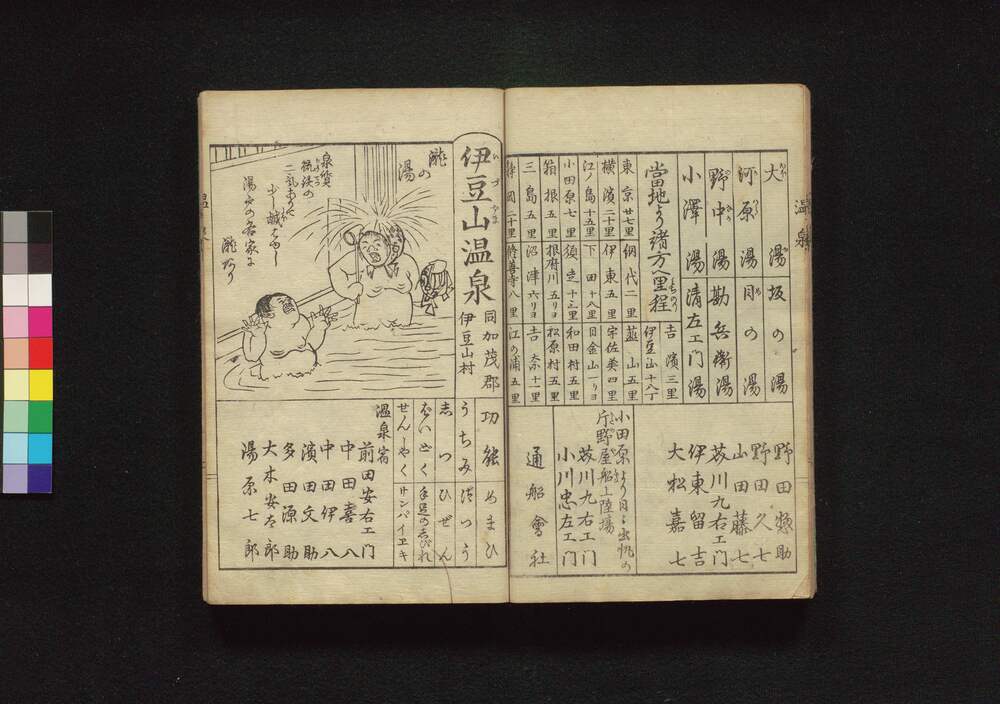 温泉
大湯
坂の湯
河原湯
月の湯
野中湯
勘兵衛湯
小澤湯
清左エ門湯
當地より諸方へ里程
吉濱 三里
伊豆山 十八丁
東京 廿七里
網代 二里
韮山 五里
横濱 二十里
伊東 五里
宇佐美 四里
江ノ島 十五里
下田 十八里
日金山 一リヨ
小田原 七里
須走 十三里
和田村 五里
箱根 五里
根府川 五リヨ
松原村 五里
三島 五里
沼津 六リヨ
吉奈 十一里
静岡 二十里
修善寺 八里
江の浦 五里
野田惣助
野田久七
山田藤七
芥川九右エ門
伊東留吉
大松嘉七
小田原より日々出帆の
片野屋船上陸場
芥川九右エ門
小川忠左エ門
通船會社
伊豆山温泉
いづさん
同加茂郡
伊豆山村
瀧の湯
泉質
二氣ありて
少し鹹はゆし
湯やの各家に
瀧あり
功能
めまひ
うちみ
づつう
しつ
ひぜん
ばいどく
手足のしびれ
せんしやく
サンパイヱキ
温泉宿
前田安右エ門
中田喜八
中田伊八
濱田文助
多田源助
大木安太郎
湯原七郎
温泉